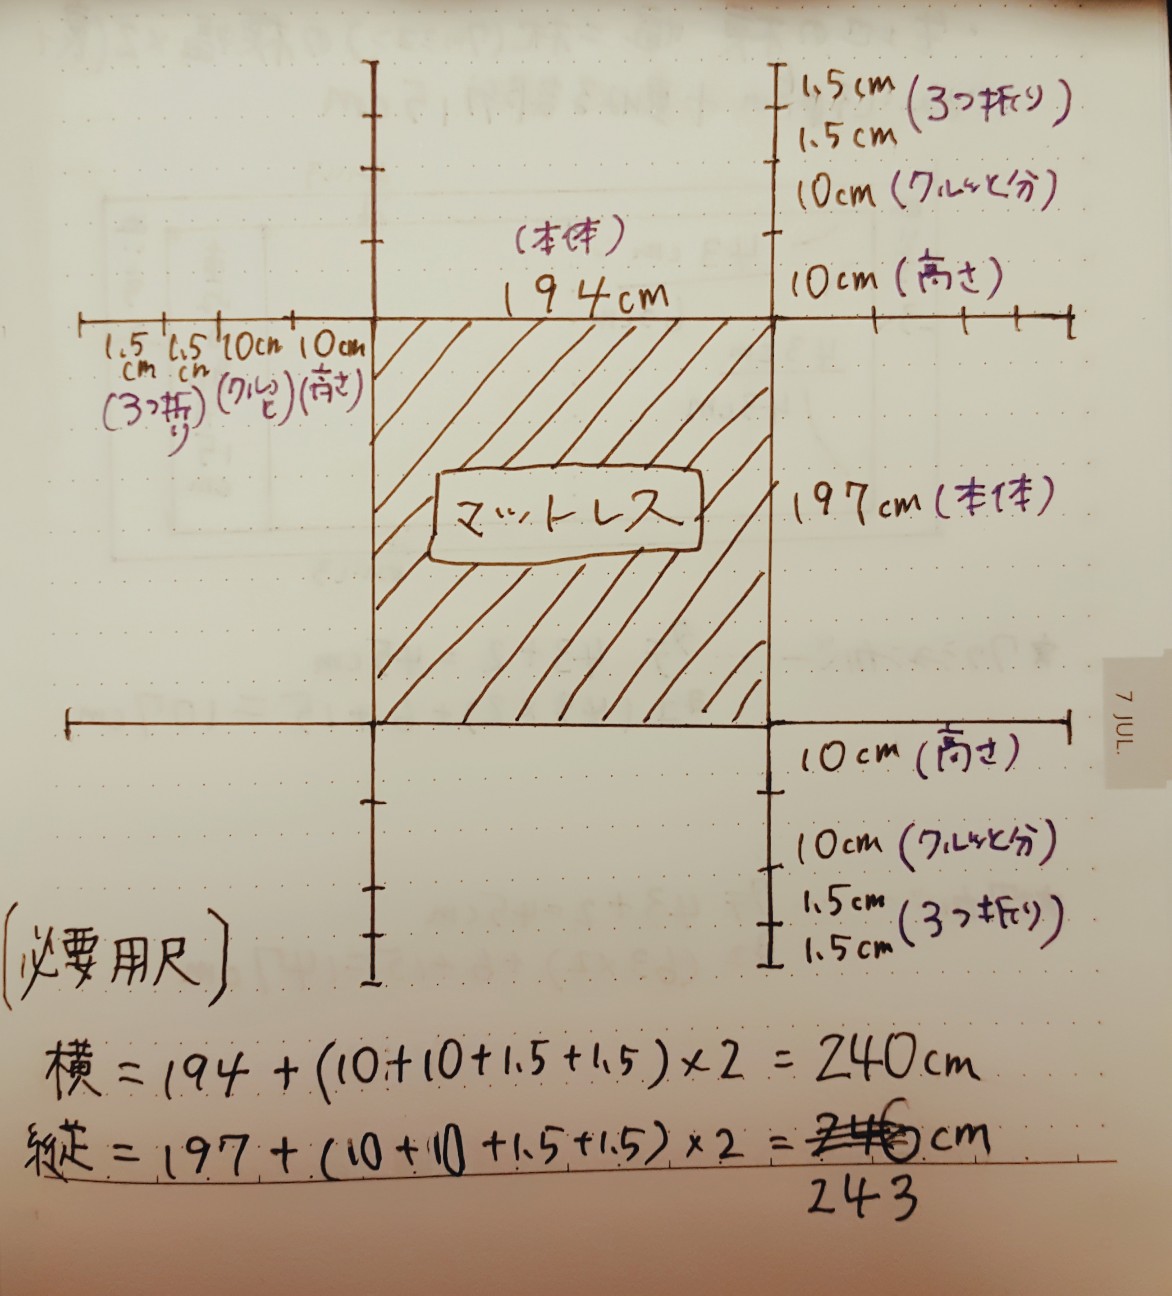 1.5cm (3つ折り)
1.5cm
10cm (クルッと分)
(本体)
194cm
10cm (高さ)
1.5cm 1.5cm 10cm 10cm
(3つ折り) (クルッと) (高さ)
マットレス
197cm (本体)
7 JUL.
10cm (高さ)
10cm (クルッと分)
1.5cm (3つ折り)
1.5cm
(必要用尺)
横 = 194 + (10+10+1.5+1.5) × 2 = 240cm
縦 = 197 + (10+10+1.5+1.5) × 2 = cm
243